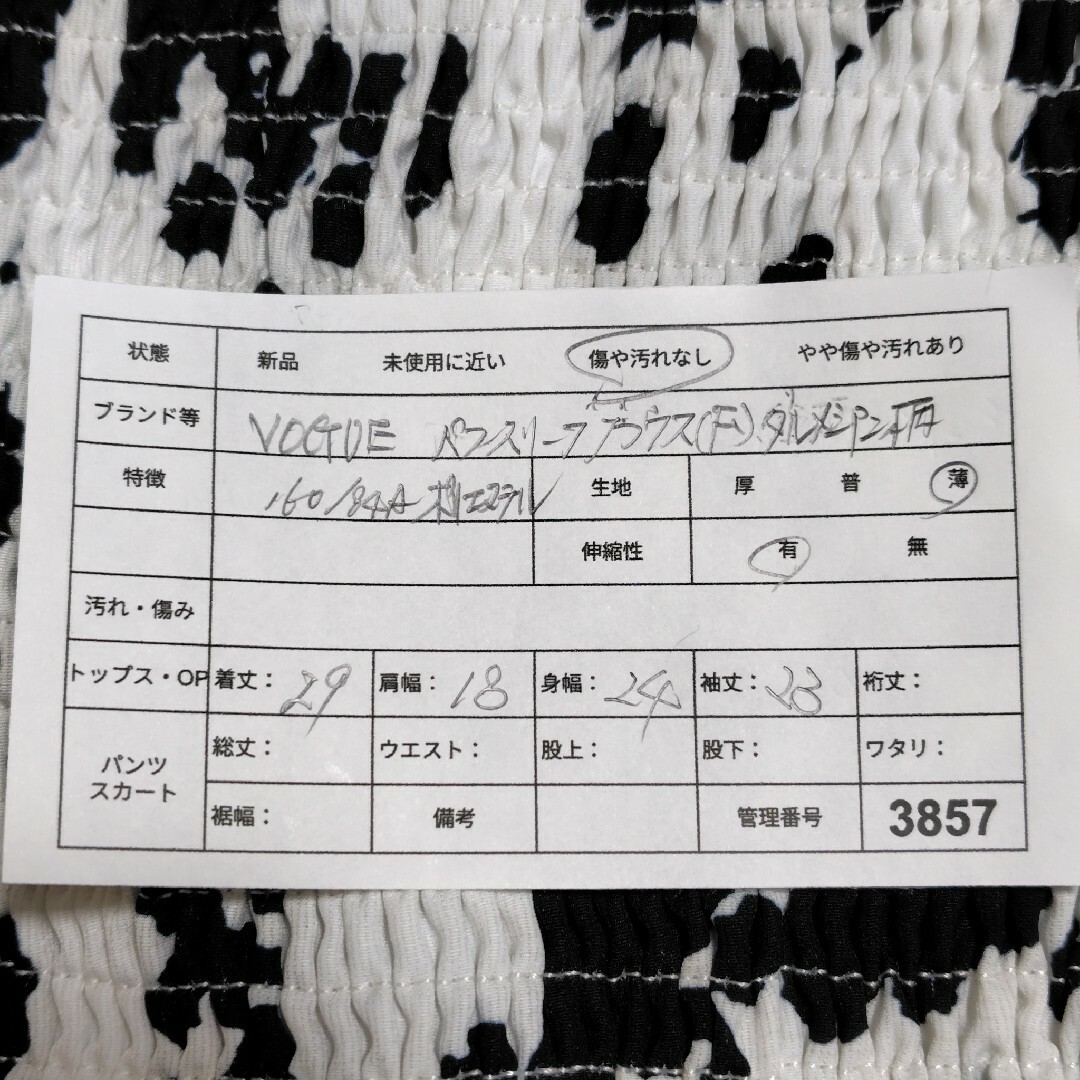 状態 新品 未使用に近い 傷や汚れなし やや傷や汚れあり
ブランド等 VOGUE パフスリーブ ブラウス(F)、ダルメシアン柄
特徴 160/84A ポリエステル 生地 厚 普 薄
伸縮性 有 無
汚れ・傷み
トップス・OP 着丈: 29 肩幅: 18 身幅: 24 袖丈: 23 裄丈:
パンツ スカート
総丈: ウエスト: 股上: 股下: ワタリ:
裾幅: 備考 管理番号 3857